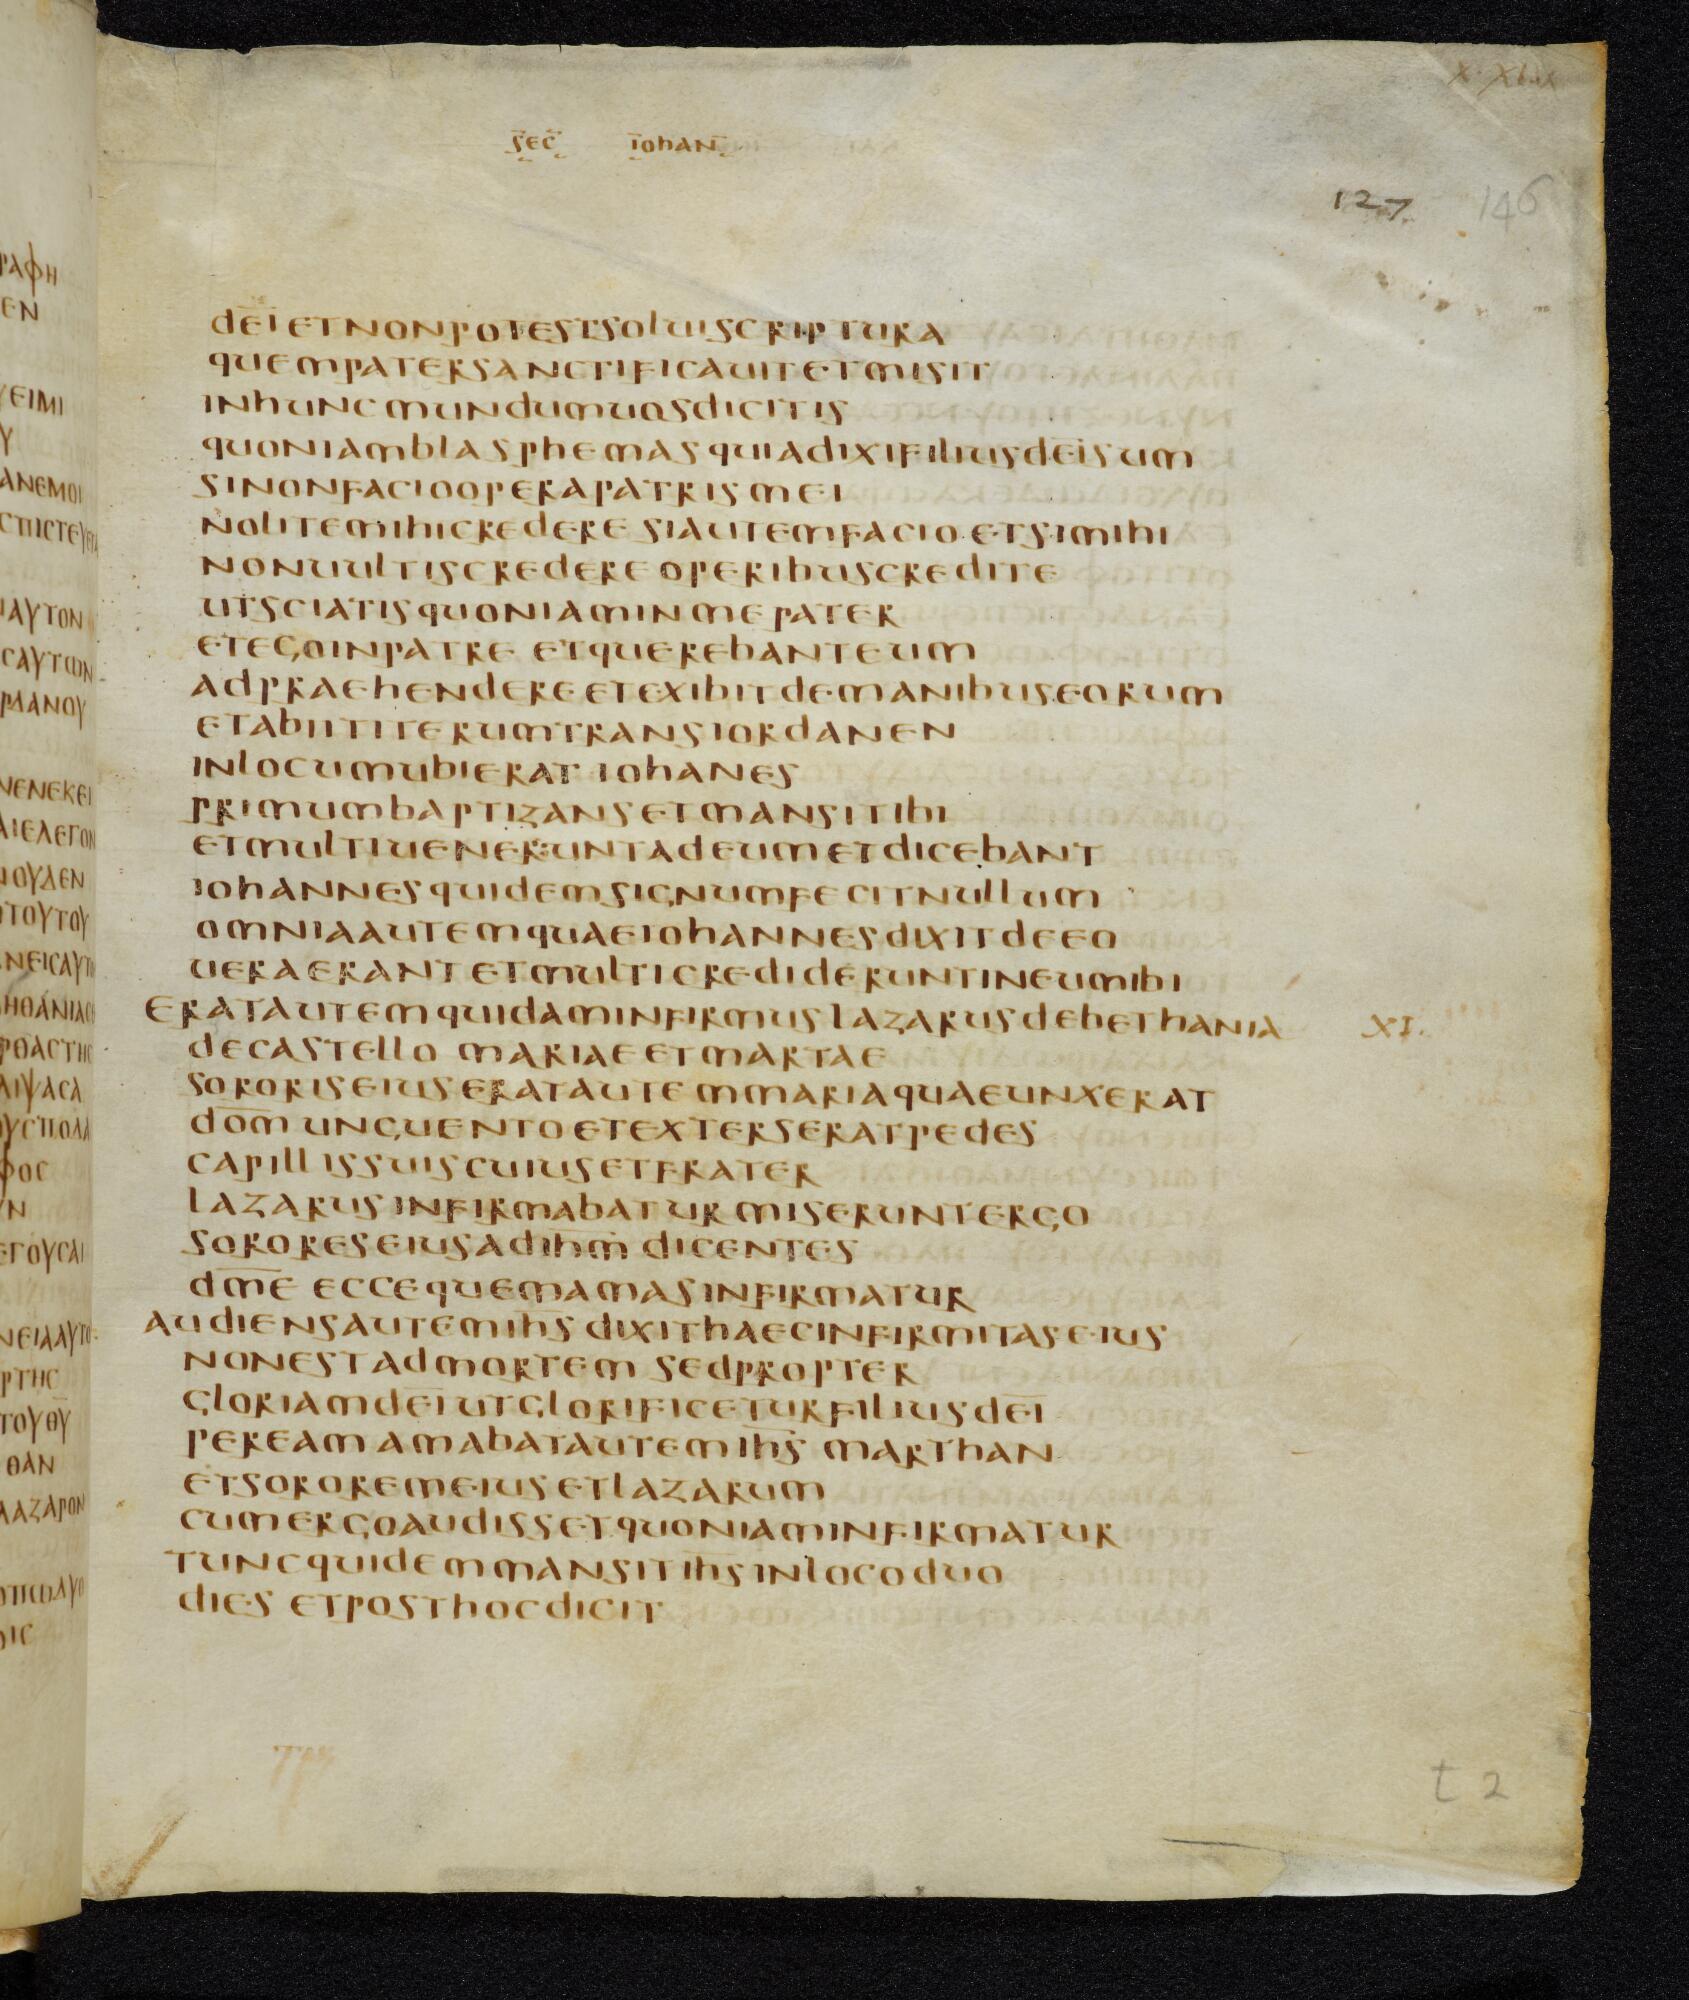 x. xlux
sec iohan
127 146
dei et non potest solui scriptura
quem pater sanctificauit et misit
in hunc mundum uos dicitis
quoniam blasphemas quia dixi filius dei sum
si non facio opera patris mei
nolite mihi credere si autem facio et si mihi
non uultis credere operibus credite
ut sciatis quoniam in me pater
et ego in patre et querebant eum
adpraehendere et exibit de manibus eorum
et abiit iterum trans iordanen
in locum ubi erat iohanes
primum baptizans et mansit ibi
et multi uenerunt ad eum et dicebant
iohannes quidem signum fecit nullum
omnia autem quae iohannes dixit de eo
uera erant et multi crediderunt in eum ibi
erat autem quidam infirmus lazarus de bethania XI.
de castello mariae et martae
sororis eius erat autem maria quae unxerat
dom unguento et exterserat pedes
capillis suis cuius et frater
lazarus infirmabatur miserunt ergo
sorores eius ad ihm dicentes
dme ecce quem amas infirmatur
audiens autem ihs dixit haec infirmitas eius
non est ad mortem sed propter
gloriam dei ut glorificetur filius dei
per eam amabat autem ihs marthan
et sororem eius et lazarum
cum ergo audisset quoniam infirmatur
tunc quidem mansit ihs in loco duo
dies et post hoc dicit
t 2